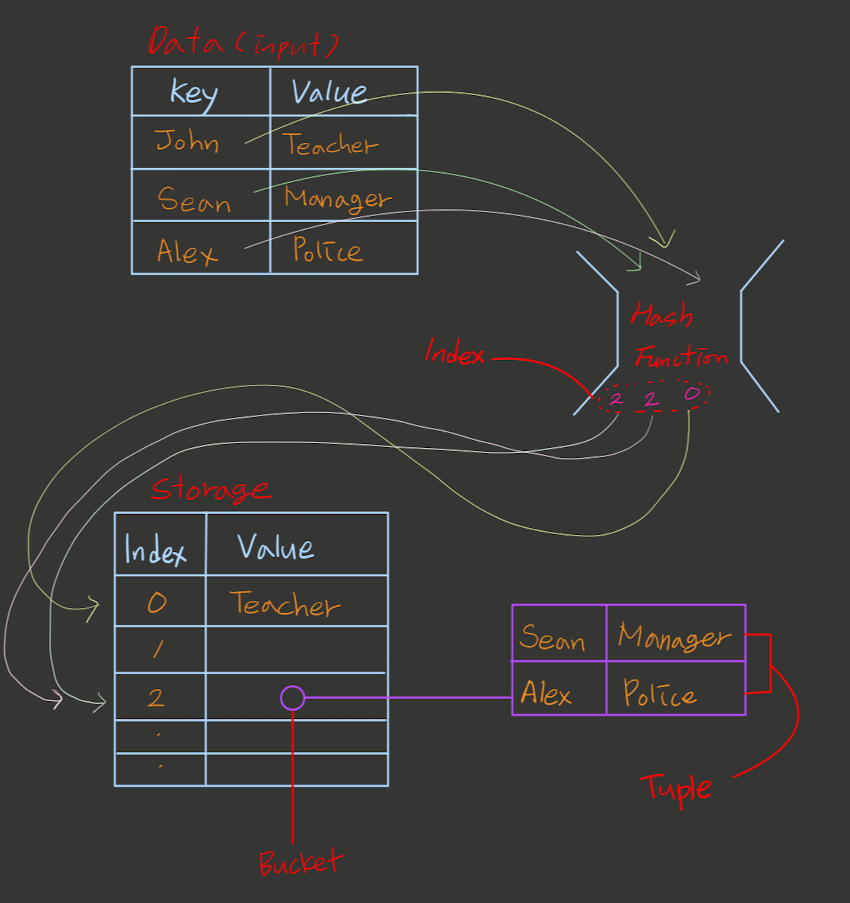 Data (input)
Key Value
John Teacher
Sean Manager
Alex Police
Hash
Function
Index
2 2 0
Storage
Index Value
0 Teacher
1
2
.
.
Sean Manager
Alex Police
Tuple
Bucket